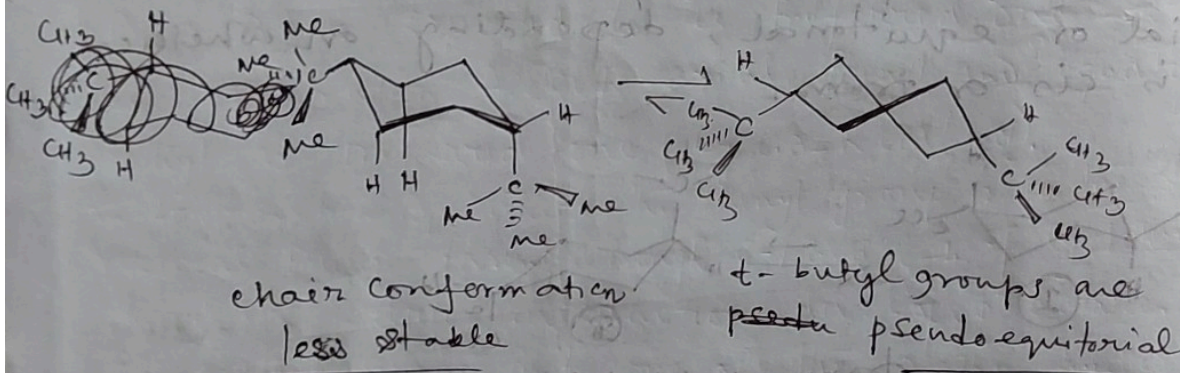 CH3 H Me
CH3 C Me C
CH3 Me
H
H H
H
C
Me Me
Me
H
CH3
C
CH3
CH3
H
C CH3
CH3
CH3
chair conformation
less stable
t-butyl groups are
pseudoequitorial